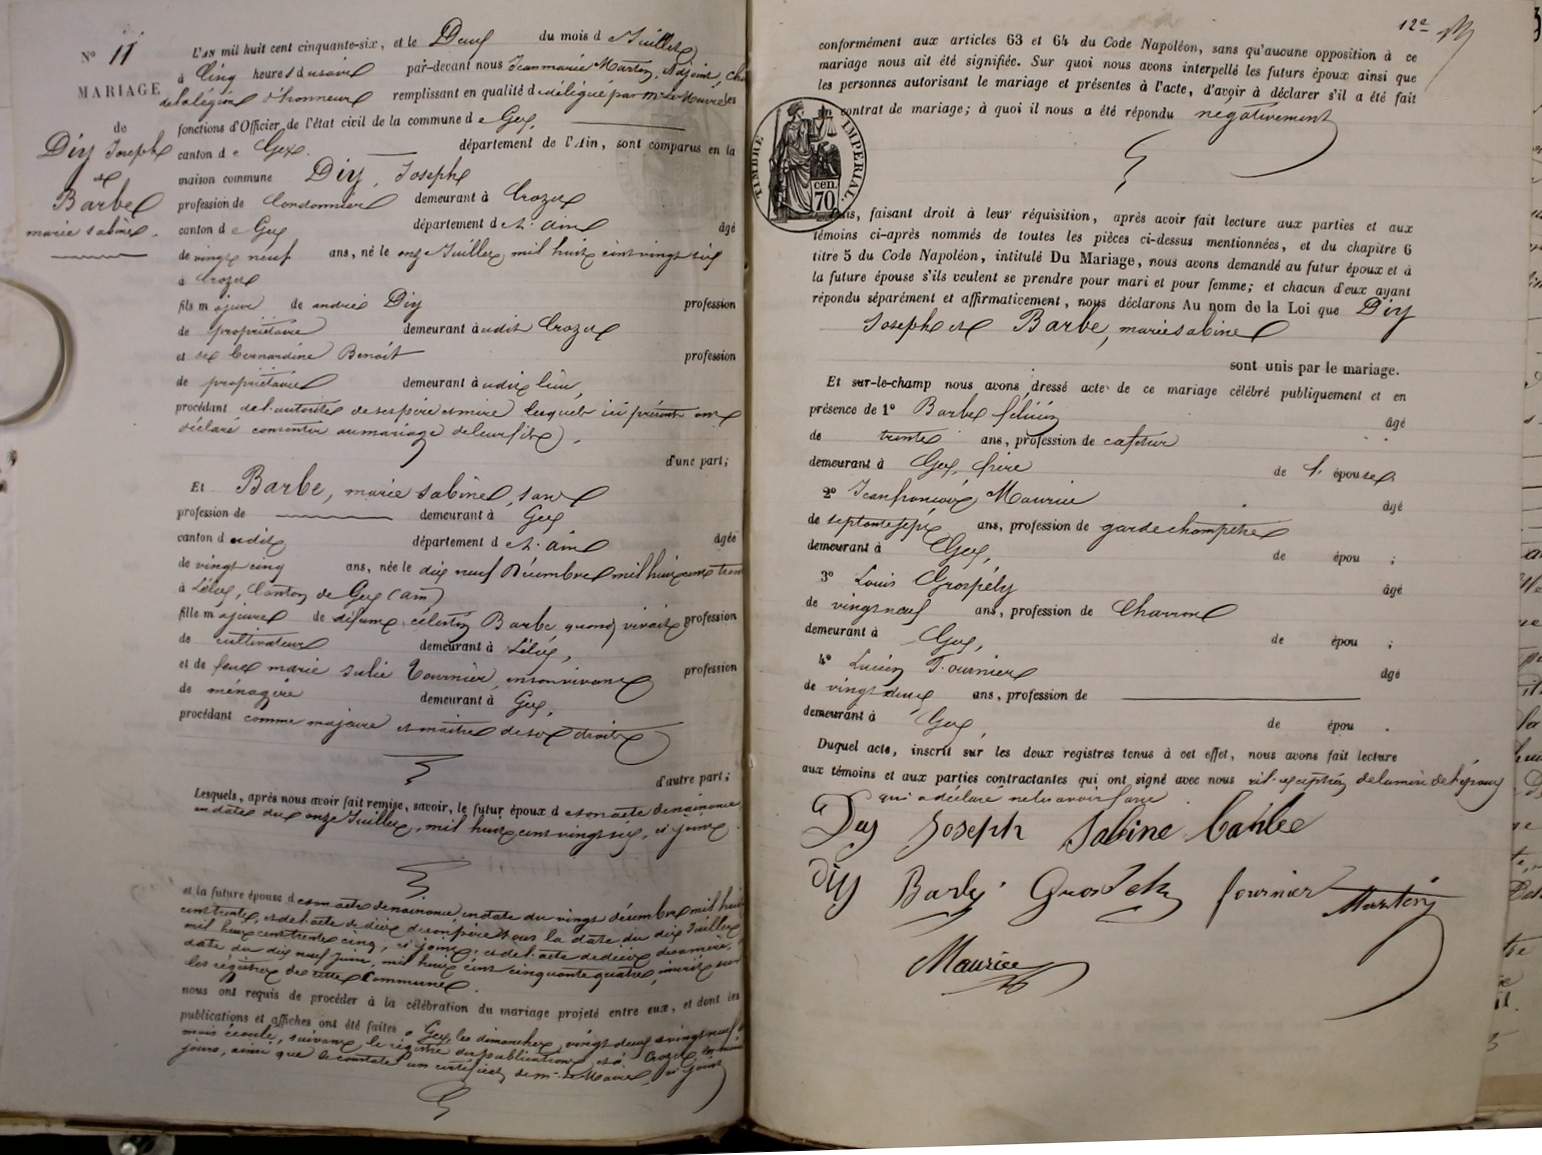 N° 11
MARIAGE
de
Diy Joseph
et
Barbe
marie sabine.
L'An mil huit cent cinquante-six, et le Deux du mois de Juillet
à Cinq heures du soir par-devant nous Jean marie Martin, Adjoint,
de la légion d'honneur remplissant en qualité de délégué par Mr le Maire les
fonctions d'Officier de l'état civil de la commune de Gex,
canton de Gex. département de l'Ain, sont comparus en la
maison commune Diy, Joseph
profession de Cordonnier demeurant à Crozet
canton de Gex département de l'ain âgé
de vingt neuf ans, né le onze Juillet mil huit cent vingt six
à Crozet
fils majeur de andré Diy profession
de propriétaire demeurant à udit Crozet
et de bernardine Benoit profession
de propriétaire demeurant à udit lieu,
procédant de l'autorité de ses père et mère lesquels ici présents ont
déclaré consentir au mariage de leur fils.
d'une part;
Et Barbe, marie sabine, sans
profession de demeurant à Gex
canton dudit département de l'ain âgée
de vingt cinq ans, née le dix neuf Décembre mil huit cent trente
à Lélex, Canton de Gex (ain)
fille majeure de défunt célestin Barbe quand vivait profession
de cultivateur demeurant à Lélex,
et de feue marie Julie Tournier, en son vivant profession
de ménagère demeurant à Gex,
procédant comme majeure et maître de ses droits
d'autre part;
Lesquels, après nous avoir fait remise, savoir, le futur époux de son acte de naissance
en date du onze Juillet, mil huit cent vingt six, ci joint
et la future épouse de son acte de naissance en date du vingt décembre mil huit
cent trente, et de l'acte de décès de son père sous la date du dix Juillet
mil huit cent trente cinq, ci joint; et de l'acte de décès de sa mère,
date du dix neuf Juin, mil huit cent cinquante quatre, inscrit sur
les régistres de cette Commune.
nous ont requis de procéder à la célébration du mariage projeté entre eux, et dont les
publications et affiches ont été faites à Gex, les dimanches, vingt deux et vingt neuf
mois écoulé, suivant le régistre des publications, et à Crozet,
jours, ainsi que le constate un certificat de Mr le Maire, ci joint
12e
conformément aux articles 63 et 64 du Code Napoléon, sans qu'aucune opposition à ce
mariage nous ait été signifiée. Sur quoi nous avons interpellé les futurs époux ainsi que
les personnes autorisant le mariage et présentes à l'acte, d'avoir à déclarer s'il a été fait
un contrat de mariage; à quoi il nous a été répondu négativement
TIMBRE IMPÉRIAL.
70 cen.
faisant droit à leur réquisition, après avoir fait lecture aux parties et aux
témoins ci-après nommés de toutes les pièces ci-dessus mentionnées, et du chapitre 6
titre 5 du Code Napoléon, intitulé Du Mariage, nous avons demandé au futur époux et à
la future épouse s'ils veulent se prendre pour mari et pour femme; et chacun d'eux ayant
répondu séparément et affirmativement, nous déclarons Au nom de la Loi que Diy
Joseph et Barbe, marie sabine
sont unis par le mariage.
Et sur-le-champ nous avons dressé acte de ce mariage célébré publiquement et en
présence de 1° Barbe félicien âgé
de trente ans, profession de cafetier
demeurant à Gex, frère de l'épouse
2° Jean françois Maurice âgé
de septante sept ans, profession de garde champêtre
demeurant à Gex, de épou ;
3° Louis Grospély âgé
de vingt neuf ans, profession de Charron
demeurant à Gex, de épou ;
4° Lucien Tournier âgé
de vingt deux ans, profession de
demeurant à Gex, de épou .
Duquel acte, inscrit sur les deux registres tenus à cet effet, nous avons fait lecture
aux témoins et aux parties contractantes qui ont signé avec nous à l'exception de la mère de l'époux
qui a déclaré ne le savoir faire
Diy Joseph Sabine Barbe
Diy Barbe fournier Martin
Maurice